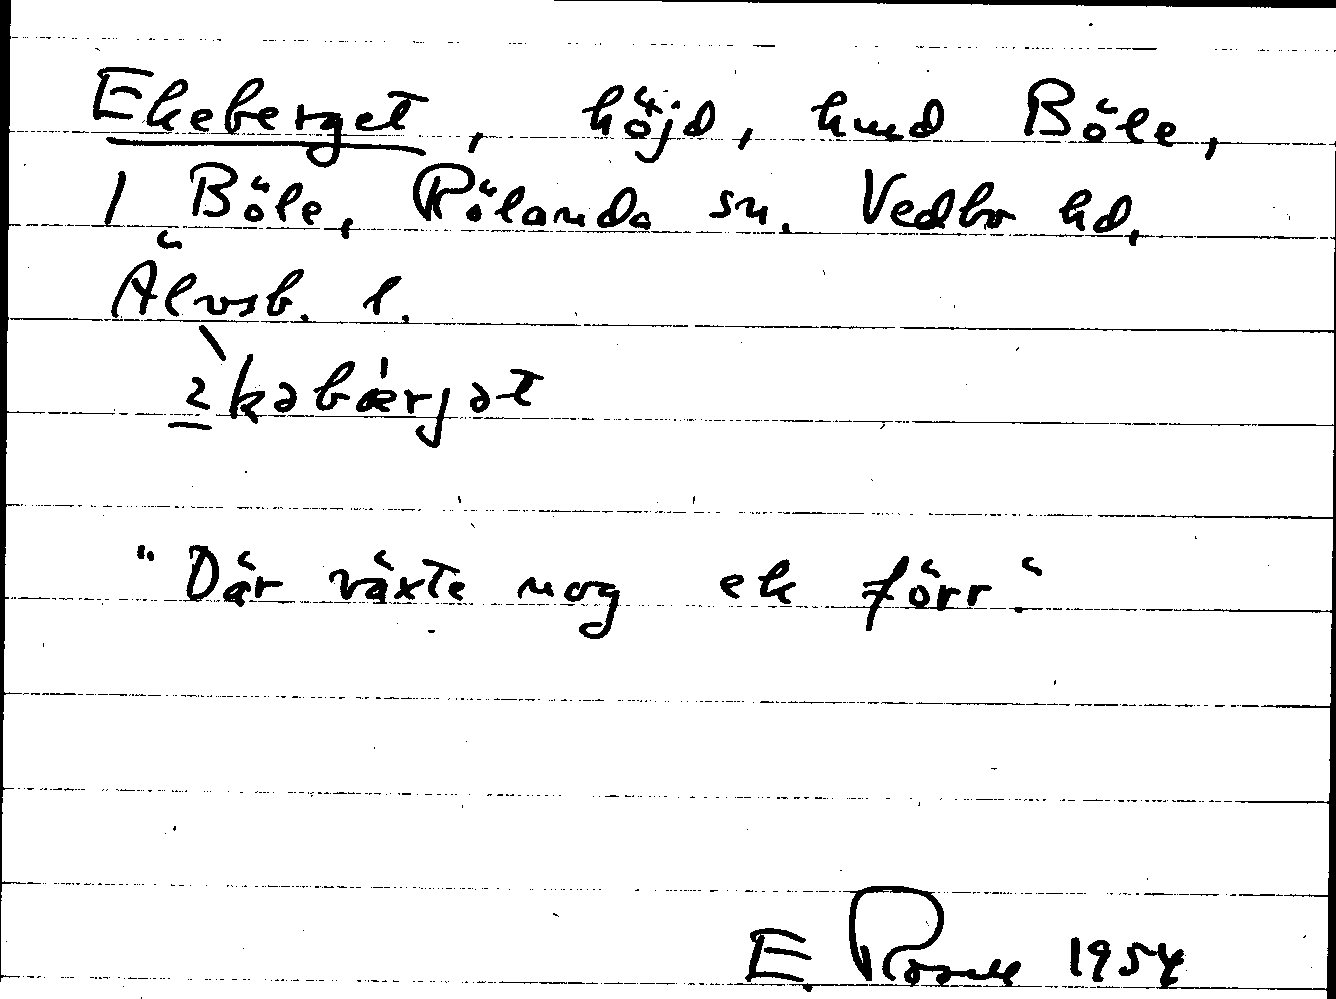 Ekeberget, höjd, hmd Böle,
1 Böle, Rölanda sn. Vedbo hd,
Älvsb. l.
kəbærjət
"Där växte nog ek förr."
E. 1954